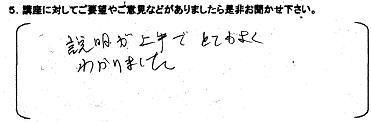 5. 講座に対してご要望やご意見などがありましたら是非お聞かせ下さい。
説明が上手で とてもよく
わかりました